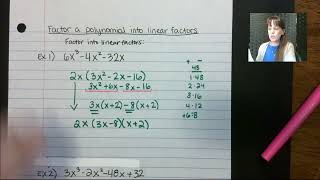 Factor a polynomial into linear factors
Factor into linear factors:
Ex 1) 6x³-4x²-32x
2x(3x²-2x-16)
3x²+6x-8x-16
3x(x+2)-8(x+2)
2x(3x-8)(x+2)
+ -
48
1·48
2·24
3·16
4·12
+6·8
Ex 2) 3x³-2x²-48x+32